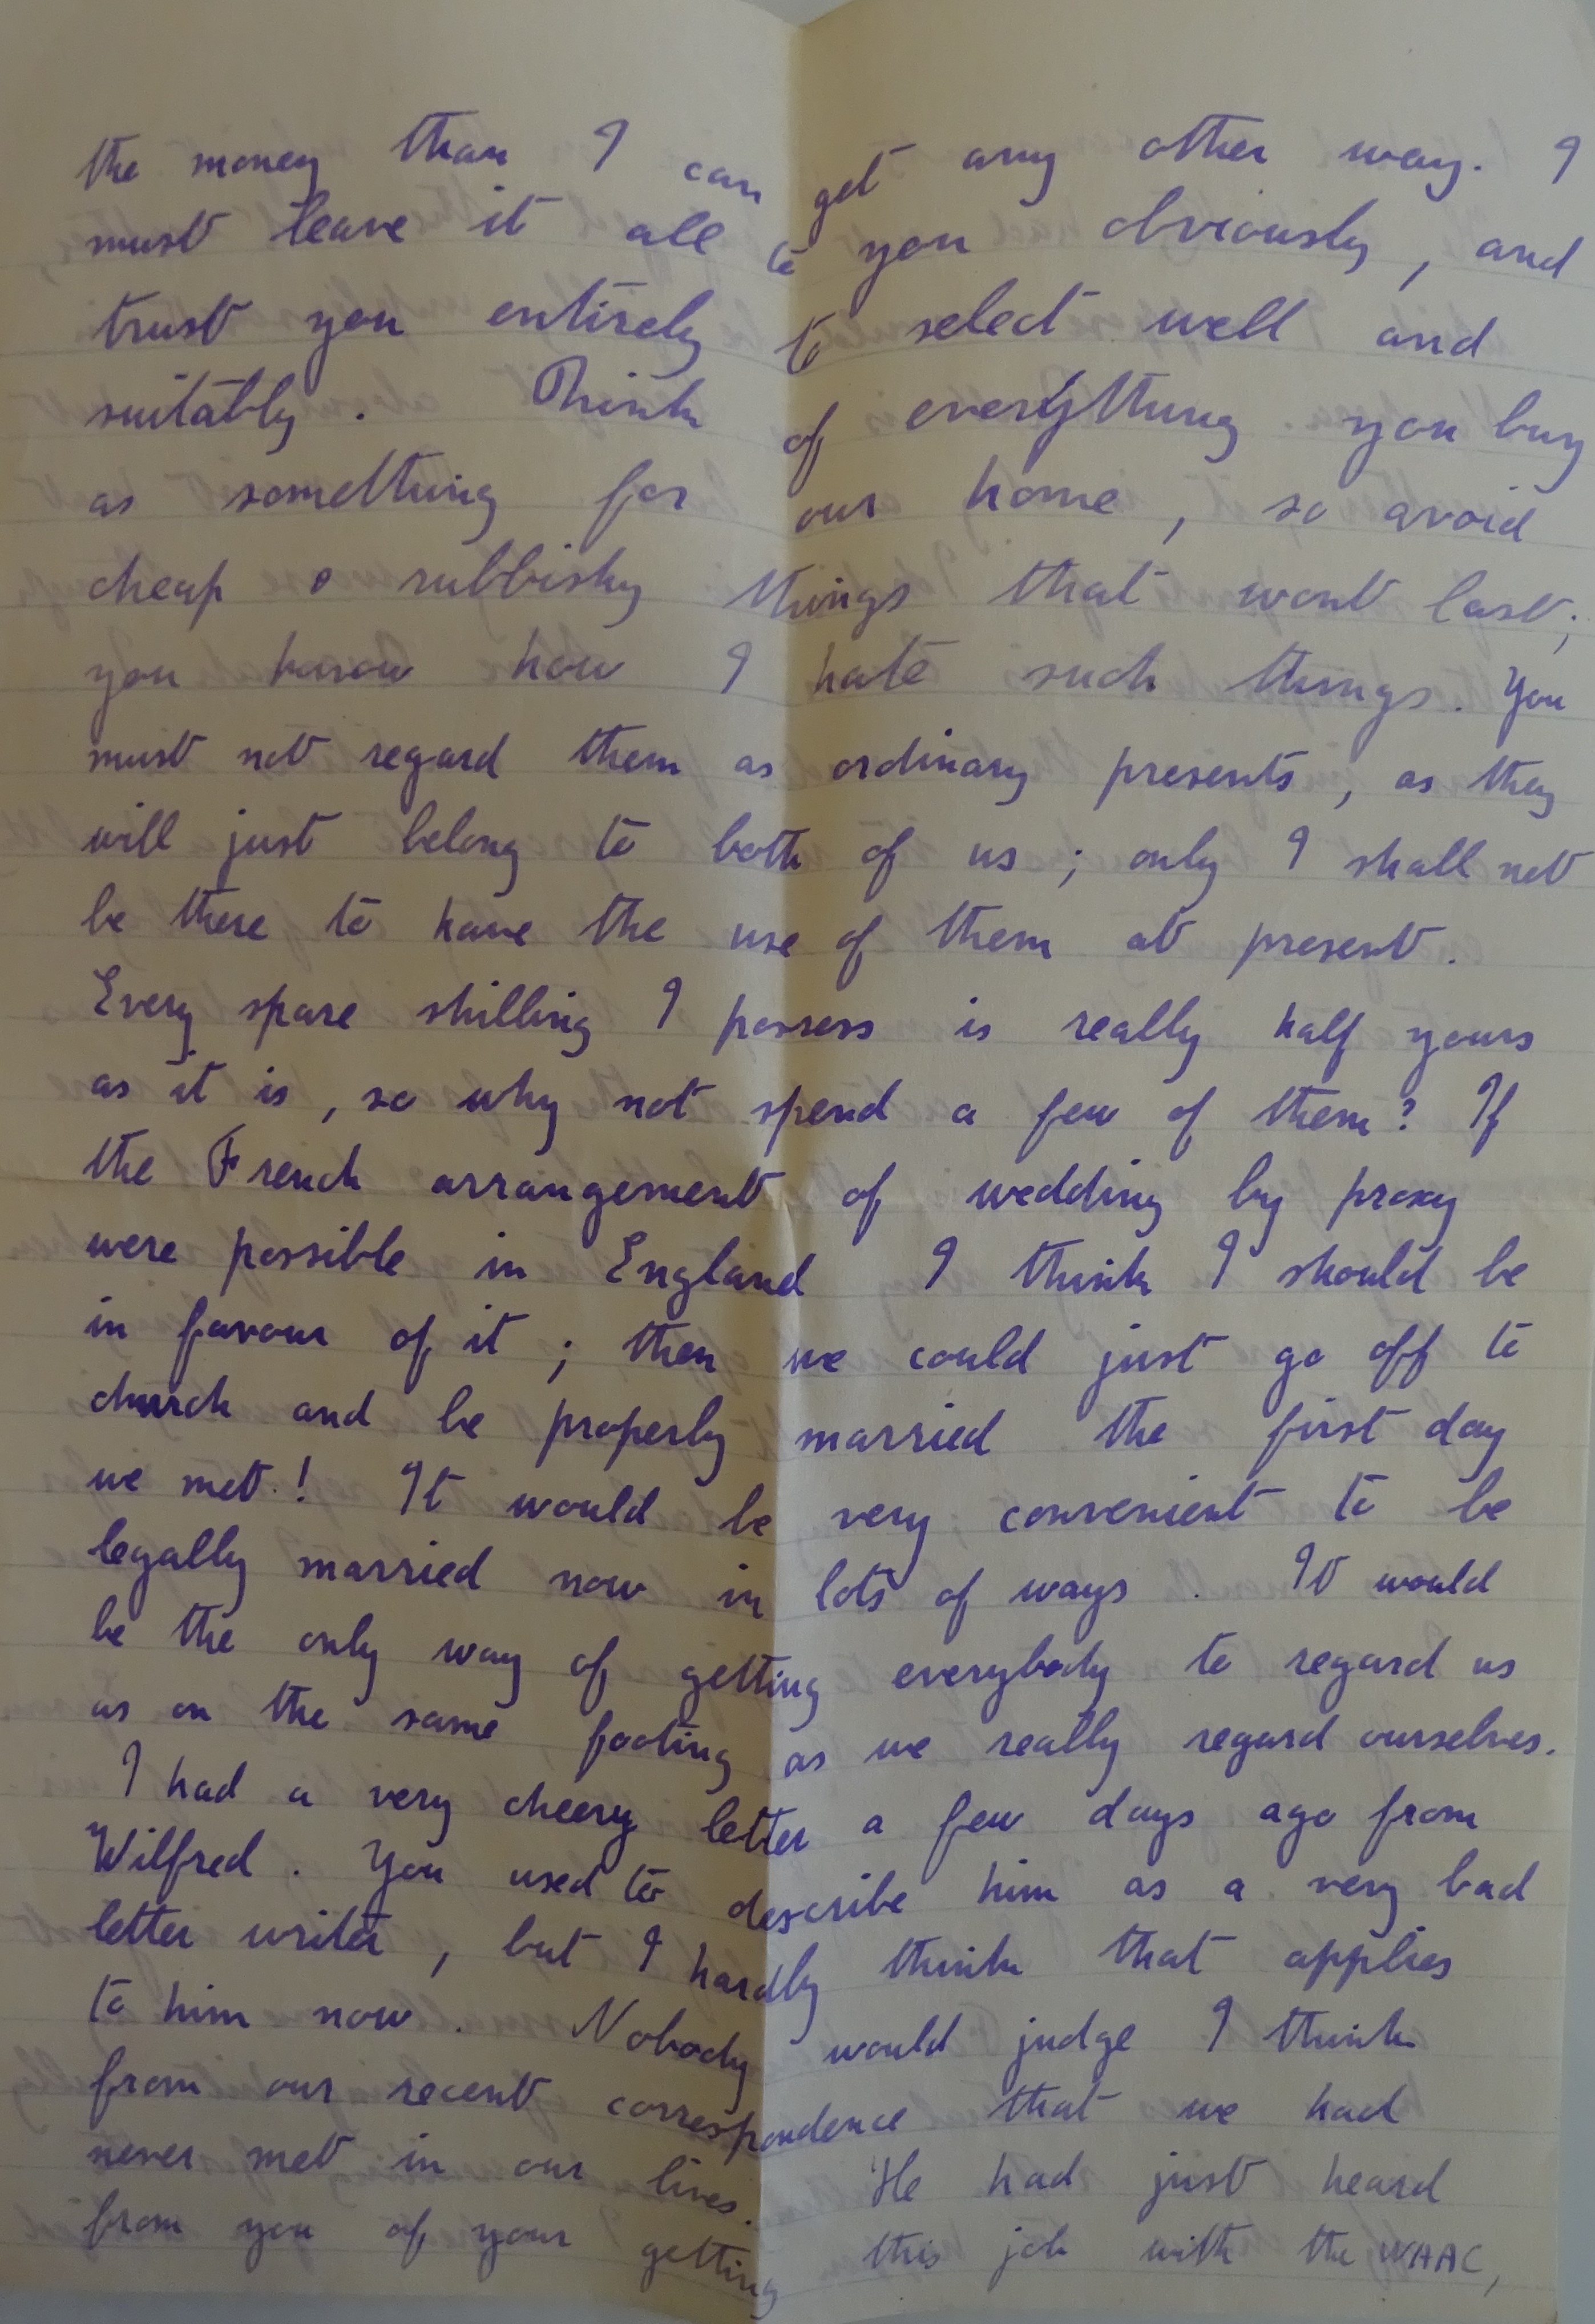 the money than I can get any other way. I
must leave it all to you obviously, and
trust you entirely to select well and
suitably. Think of everything you buy
as something for our home, so avoid
cheap & rubbishy things that wont last;
you know how I hate such things. You
must not regard them as ordinary presents, as they
will just belong to both of us; only I shall not
be there to have the use of them at present.
Every spare shilling I possess is really half yours
as it is, so why not spend a few of them? If
the French arrangement of wedding by proxy
were possible in England I think I should be
in favour of it; then we could just go off to
church and be properly married the first day
we met! It would be very convenient to be
legally married now in lots of ways. It would
be the only way of getting everybody to regard us
as on the same footing as we really regard ourselves.
I had a very cheery letter a few days ago from
Wilfred. You used to describe him as a very bad
letter writer, but I hardly think that applies
to him now. Nobody would judge I think
from our recent correspondence that we had
never met in our lives. He had just heard
from you of your getting this job with the WAAC,